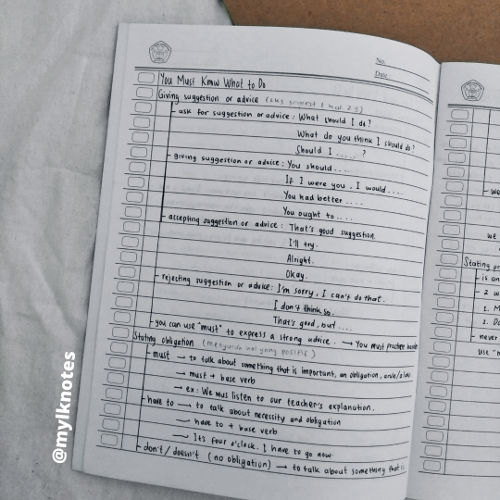 No.
Date:
You Must Know What to Do
Giving suggestion or advice
ask for suggestion or advice: What should I do?
What do you think I should do?
Should I ..... ?
giving suggestion or advice: You should .....
If I were you, I would ....
You had better ....
You ought to ....
accepting suggestion or advice: That's good suggestion.
I'll try.
Alright.
Okay.
rejecting suggestion or advice: I'm sorry, I can't do that.
I don't think so.
That's good, but ....
you can use "must" to express a strong advice. → You must practice
Stating obligation
must → to talk about something that is important, an obligation,
→ must + base verb
→ ex: We mus listen to our teacher's explanation.
have to → to talk about necessity and obligation
→ have to + base verb
→ It's four o'clock. I have to go now
don't / doesn't (no obligation) → to talk about something that
we
Stating
is an
2
1.
2.
never
Use
@mylknotes